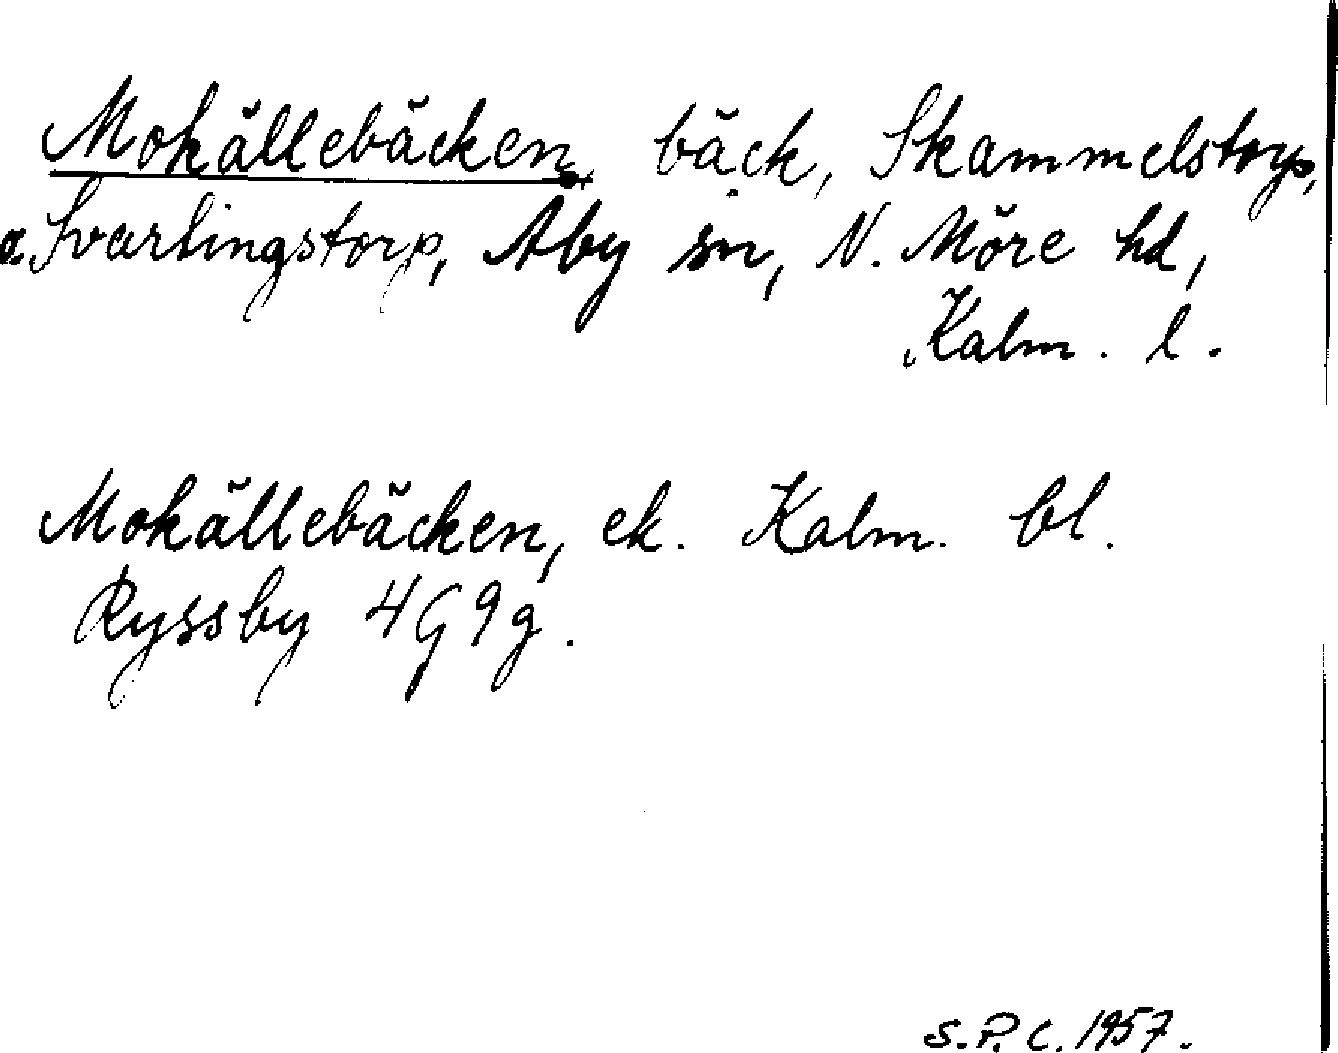 Mokällebäcken, bäck, Skammelstorp,
o. Svarlingstorp, Åby sn, N. Möre hd,
Kalm. l.
Mokällebäcken, ek. Kalm. bl.
Ryssby 4G9g.
S.P.C. 1957.